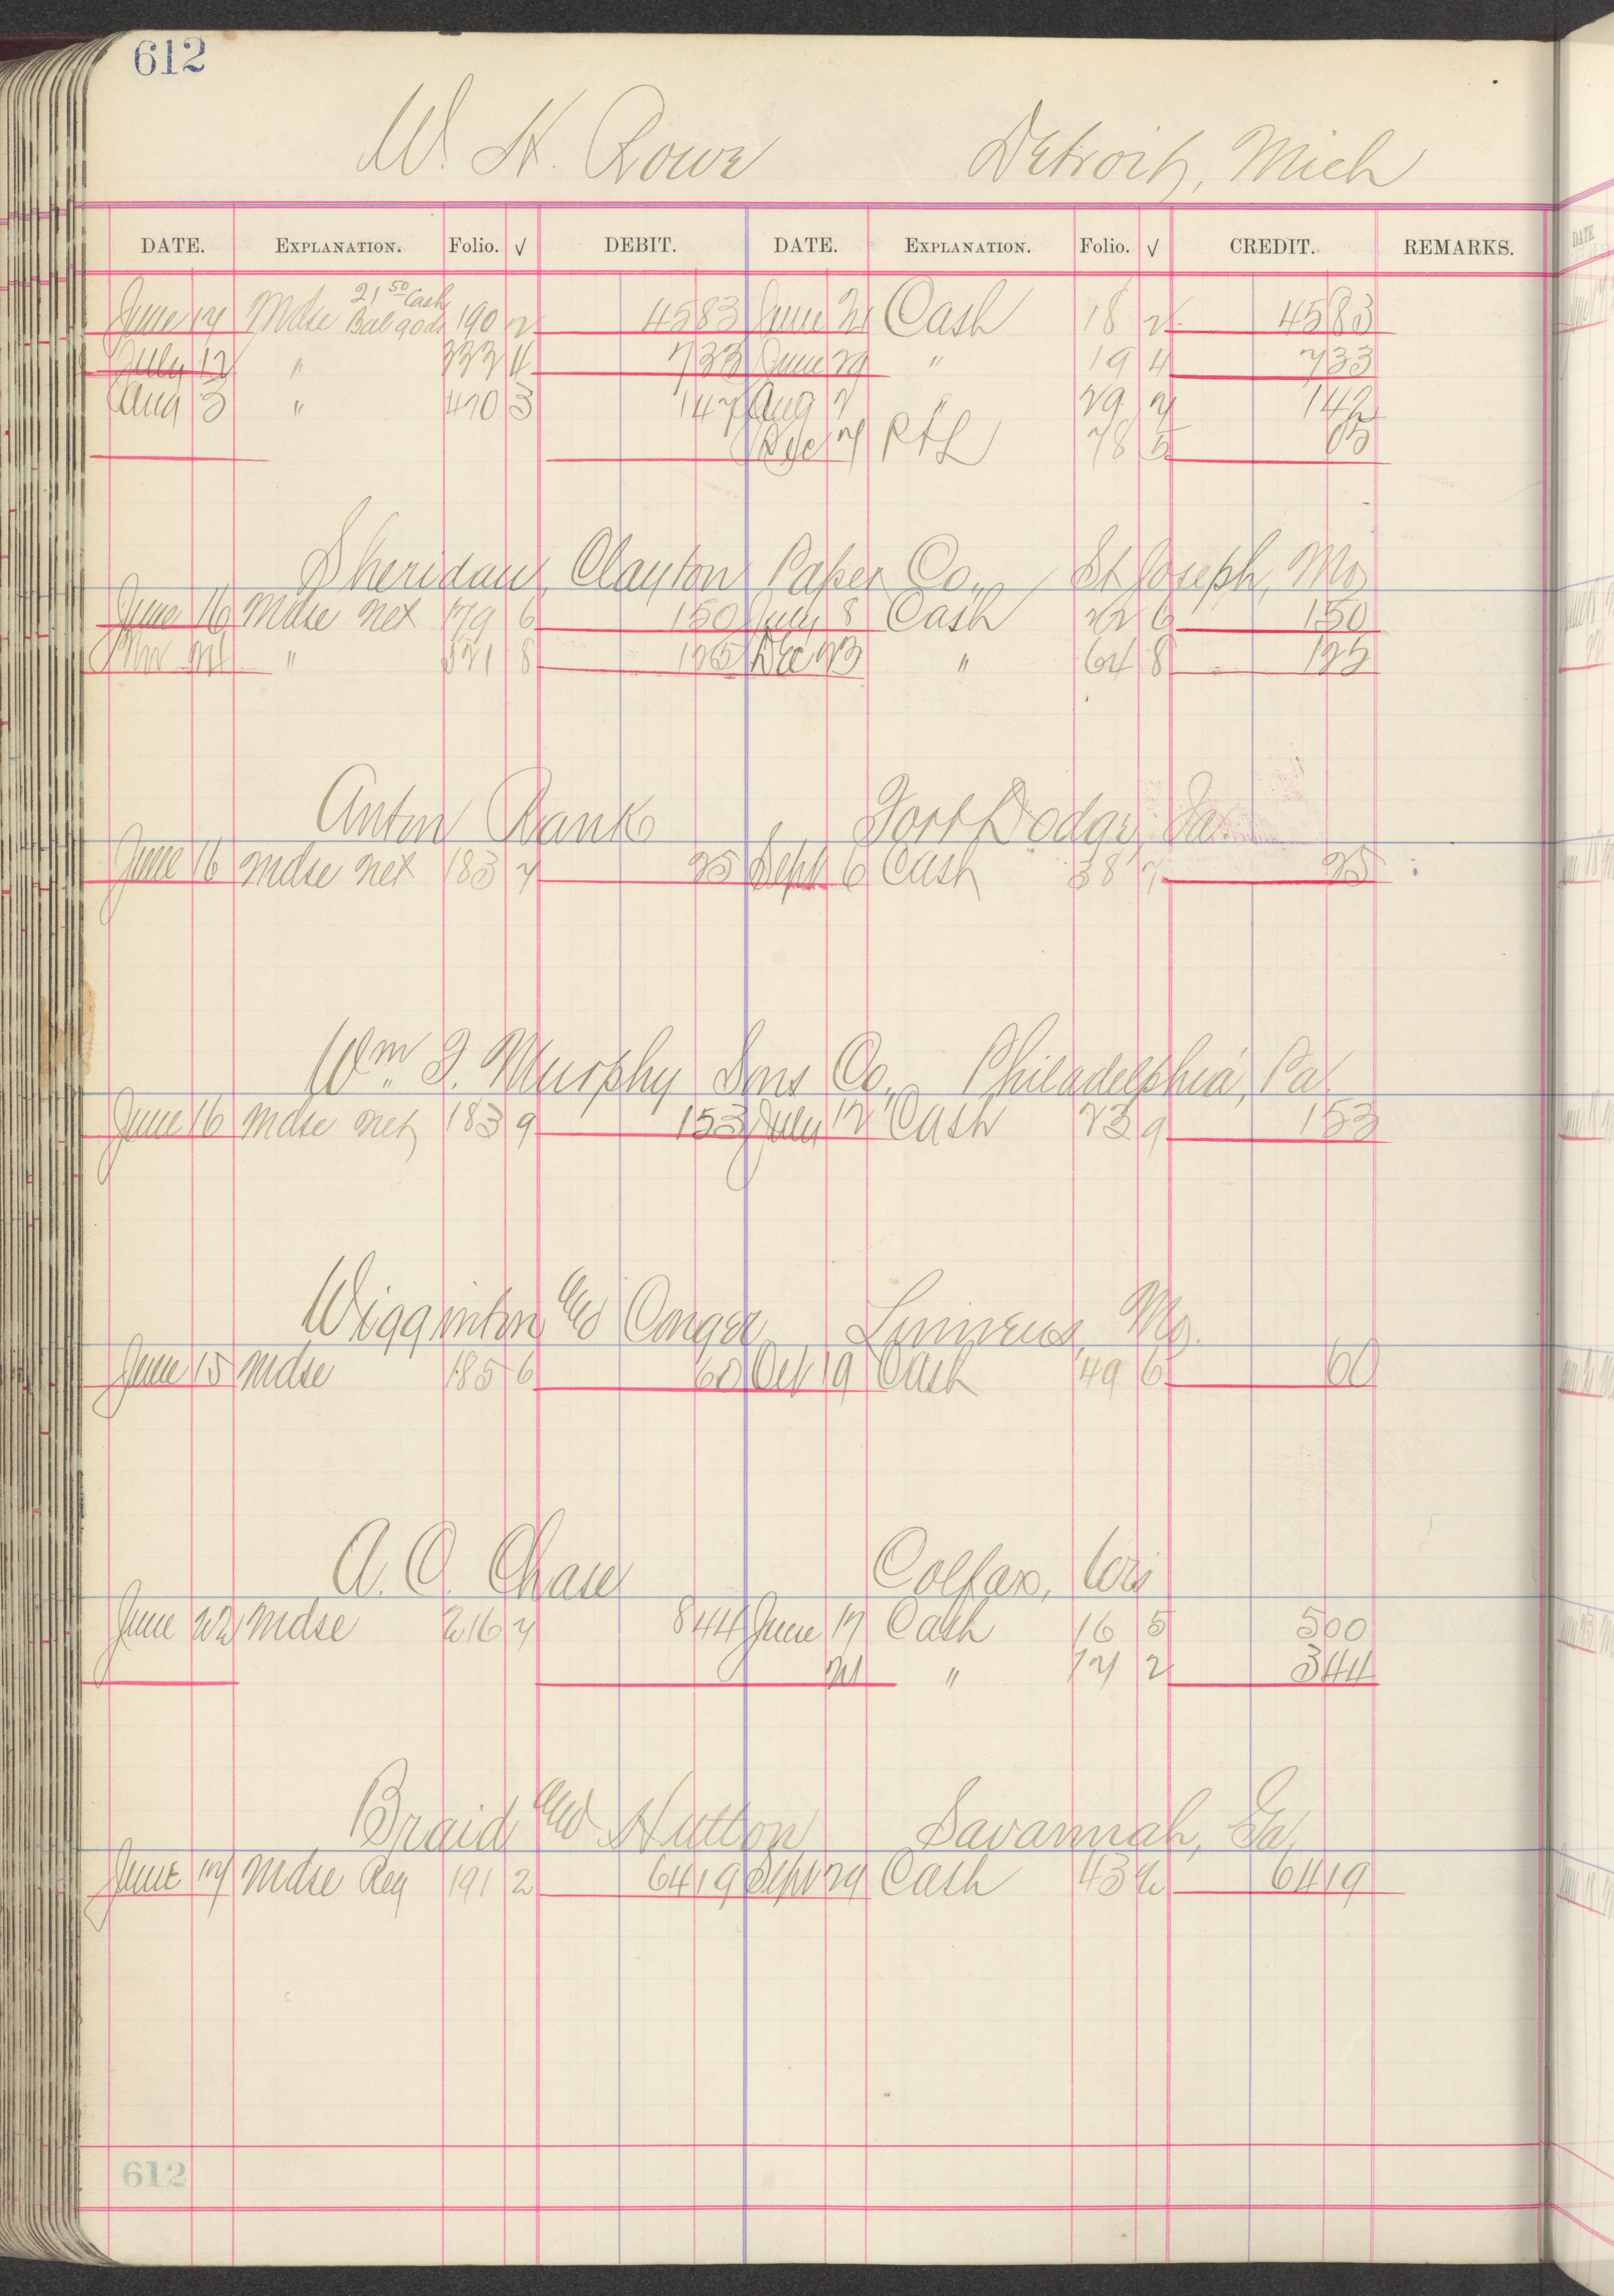 612
W. H. Rowe Detroit, Mich
DATE. EXPLANATION. Folio. √ DEBIT. DATE. EXPLANATION. Folio. √ CREDIT. REMARKS.
21 50 Cash
June 17 Mdse Bal gods 190 2 4583 June 21 Cash 18 2 4583
July 12 " 333 4 733 June 29 " 19 4 733
Aug 3 " 420 3 147 Aug 7 " 29 7 142
Dec 7 P & L 78 5 05
Sheridan, Clayton Paper Co., St Joseph, Mo
June 16 Mdse net 179 6 150 July 8 Cash 22 6 150
" 521 8 125 Dec 23 " 64 8 125
Anton Rank Fort Dodge, Ia.
June 16 Mdse net 183 7 25 Sept 6 Cash 38 7 25
Wm. F. Murphy Sons Co., Philadelphia, Pa.
June 16 Mdse net 183 9 153 July 12 Cash 23 9 153
Wigginton and Conger Linneus, Mo.
June 15 Mdse 185 6 60 Oct 19 Cash 49 6 60
A. O. Chase Colfax, Wis
June 22 Mdse 216 7 844 June 17 Cash 16 5 500
21 " 17 2 344
Braid and Hutton Savannah, Ga.
June 17 Mdse Reg 191 2 6419 Sept 29 Cash 43 2 6419
612